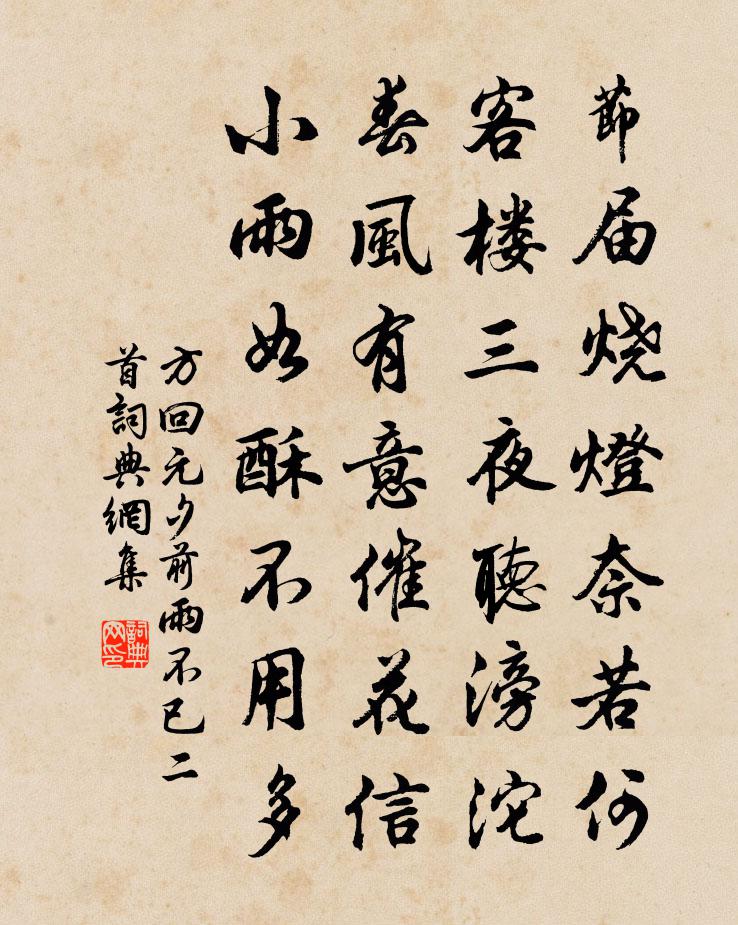 節届烧燈奈若何
客楼三夜聽滂沱
春風有意催花信
小雨如酥不用多
方回元夕前雨不已二
首詞典網集
詞典
网印